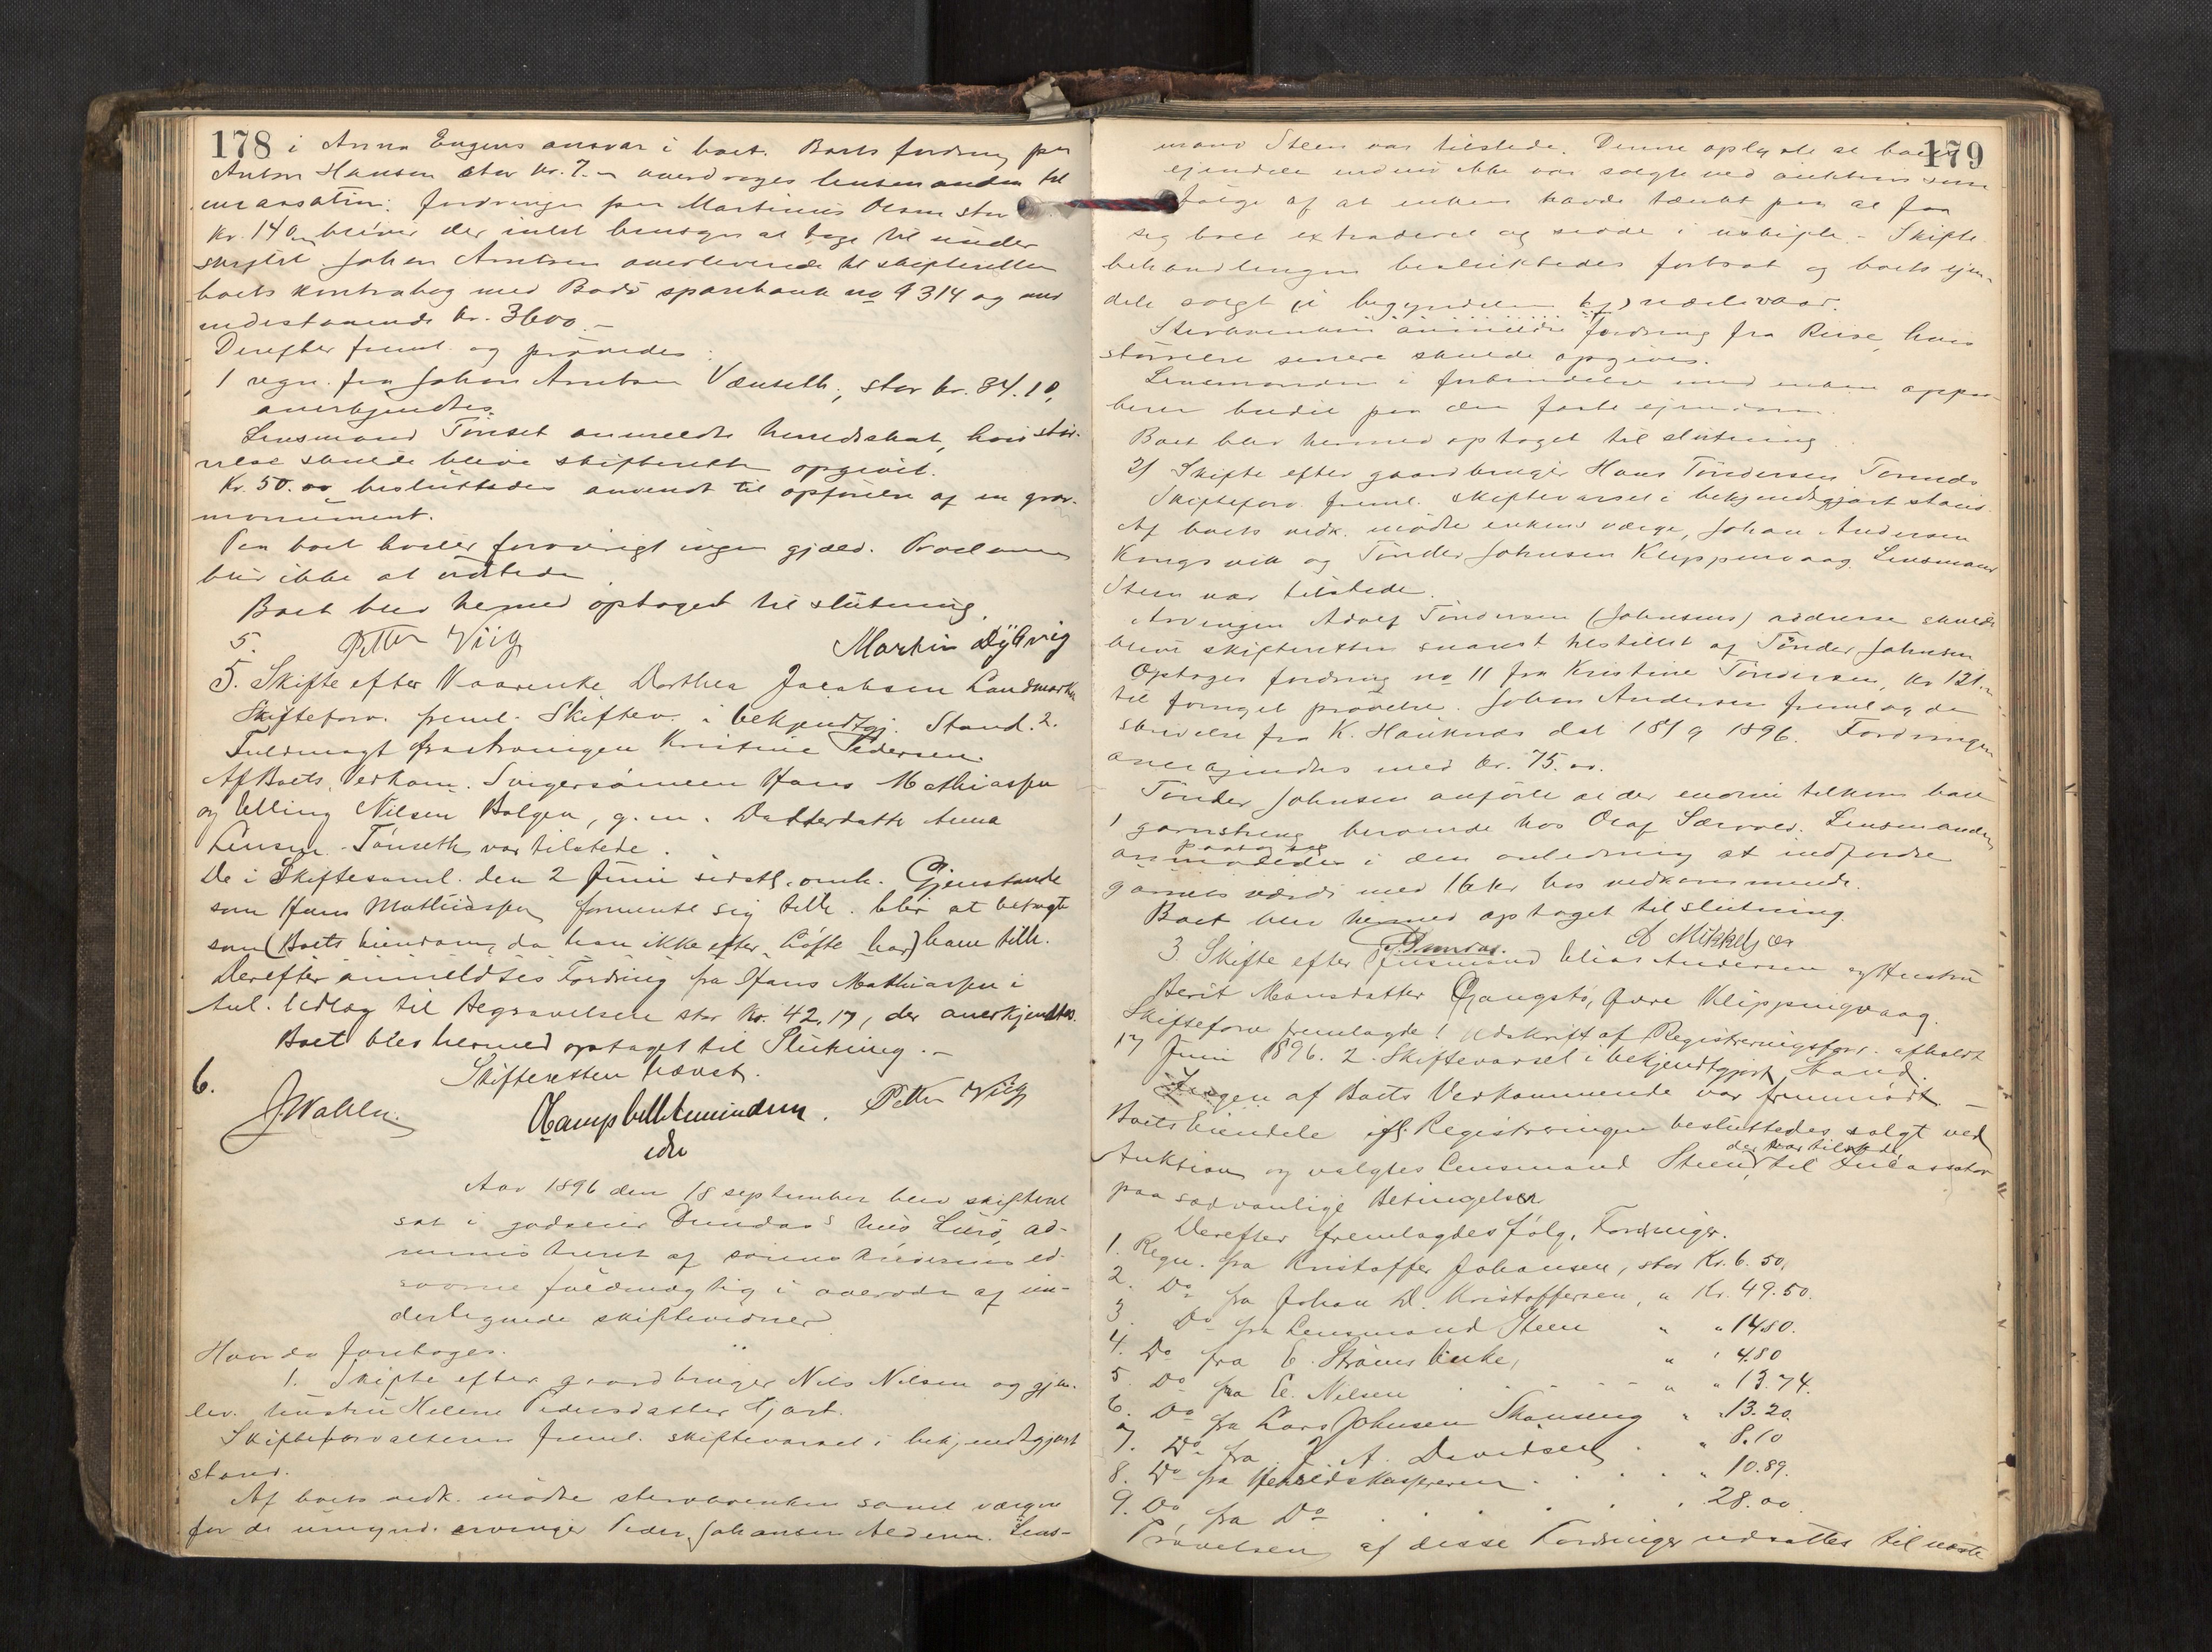 178 i Anna Engens ansvar i boet. Boets fordring paa
Anton Hansen stor kr. 7.- overdroges lensmanden til
incassation. Fordringen paa Martinus Olsen stor
kr. 140,- bliver der intet hensyn at tage til under
skiftet. Johan Arntsen overleverede til skifteretten
boets kontrabog med Bodø sparebank no 9314 og med
indestaaende kr. 3600.-
Derefter freml. og prøvedes:
1 regn. fra Johan Arntsen Vænseth, stor kr. 84.10,
anerkjendtes.
Lensmand Tønset anmeldte herredsskat, hvis stør-
relse skulde blive skifteretten opgivet.
Kr. 50.00 besluttedes anvendt til opførelse af en grav-
monument.
Paa boet hviler forøvrigt ingen gjæld. Proclama
blir ikke at udstede.
Boet blev hermed optaget til slutning.
5. Petter Viig Martin Dybvig
5. Skifte efter Kaarenke Dorthea Jacobsen Landmark
Skifteforv. freml. Skiftev. i bekjendtgj. Stand. 2.
Fuldmagt fra arvingen Kristine Pedersen.
Af Boets Vedkom. Svigersønnen Hans Mathiassen
og Elling Nilsen Bolgen, g. m. Datterdatter Anna
Lensm. Tønseth var tilstede.
De i Skiftesaml. den 2 Juni sidstl. omh. Gjenstande
som Hans Mathiassen formente sig tilh. blir at betragte
som (Boets Eiendom, da han ikke efter Løfte har) ham tilh.
Derefter anmeldtes Fordring fra Hans Mathiassen i
Anl. Udlæg til Begravelsen stor Kr. 42,17, der anerkjendtes.
Boet blev hermed optaget til Slutning.-
Skifteretten hævet.
6.
J. Wahlen. O Campbell Amundsen. Petter Viig
edsv
Aar 1896 den 18 september blev skifteret
sat i godseier Dundas's hus Lurø, ad-
ministreret af sorenskriverens ed-
svorne fuldmægtig i overvær af un-
dertegnede skiftevidner
Hvor da foretoges.
1. Skifte efter gaardbruger Nils Nilsen og gjen-
lev. hustru Helene Pedersdatter Hjart.
Skifteforvalteren freml. skiftevarsel i bekjendtgjort
stand.
Af boets vedk. mødte stervboenken samt værgen
for de umynd. arvinger Peder Johansen Alderen. Lens-
179
mand Steen var tilstede. Denne oplyste at boets
eiendele endnu ikke var solgte ved auktion som
følge af at enken havde tænkt paa at faa
sig boet extraderet og sidde i uskifte.- Skifte-
behandlingen besluttedes fortsat og boets eien-
dele solgt i begyndelsen af næste vaar.
Stervboenken anmeldte fordring fra Ruse, hvis
størrelse senere skulde opgives.
Lensmanden i forbindelse med enken appro-
berer budet paa den faste eiendom.
Boet blev hermed optaget til slutning.
2) Skifte efter gaardbruger Hans Tøndersen Tonnes
Skifteforv. freml. skiftevarsel i bekjendtgjort stand.
Af boets vedk. mødte enkens værge, Johan Andersen
Kongsvik og Tønder Johnsen Klippenvaag. Lensmand
Steen var tilstede.
Arvingen Adolf Tøndersen (Johnsens) addresse skulde
blive skifteretten snarest tilstillet af Tønder Johnsen
Optoges fordring no 11 fra Kristine Tøndersen, kr 121.-
til fornyet prøvelse. Johan Andersen fremlagde
skrivelse fra K. Hauknæs dat 18/9 1896. Fordringen
anerkjendtes med kr. 75.00.
Tønder Johnsen anførte at der endnu tilkom boet
1 garnstreng beroende hos Olaf Sørvold. Lensmanden
paatog sig
anmodedes i den anledning at indfordre
garnets værdi med 16 kr hos vedkommende.
Boet blev hermed optaget til slutning.
Dundas. A Mikkelsen
3 Skifte efter Husmand Elias Andersen og Hustru
Berit Monsdatter Gangstø, Øvre Klippingvaag.
Skifteforv. fremlagde 1 Udskrift af Registreringsforr. afholdt
17 Juni 1896. 2. Skiftevarsel i bekjendtgjort Stand.
Ingen af Boets Vedkommende var fremmødt.-
Boets Eiendele ifl. Registreringen besluttedes solgt ved
der var tilstede,
Auktion og valgtes Lensmand Steen, til Incassator
paa sædvanlige Betingelser
Derefter fremlagdes følg. Fordringer.
1. Regn. fra Kristoffer Johansen, stor Kr. 6.50,
2. Do fra Johan D. Kristoffersen, " Kr. 49.50.
3. Do fra Lensmand Steen " " 14.80.
4. Do fra E. Strøms Enke, " " 4.80
5. Do fra E. Nilsen " " 13.74.
6. Do fra Lars Johnsen Skonseng " " 13.20.
7. Do fra J. A. Davidsen " 8.10
8. Do fra Herredskassereren " 10.89.
9. Do, fra Do 28.00.
Prøvelsen af disse Fordringer udsattes til næste